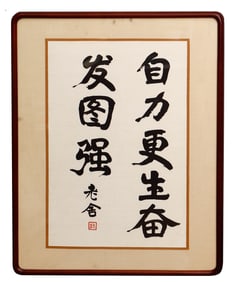 自力更生奋
发图强
老舍